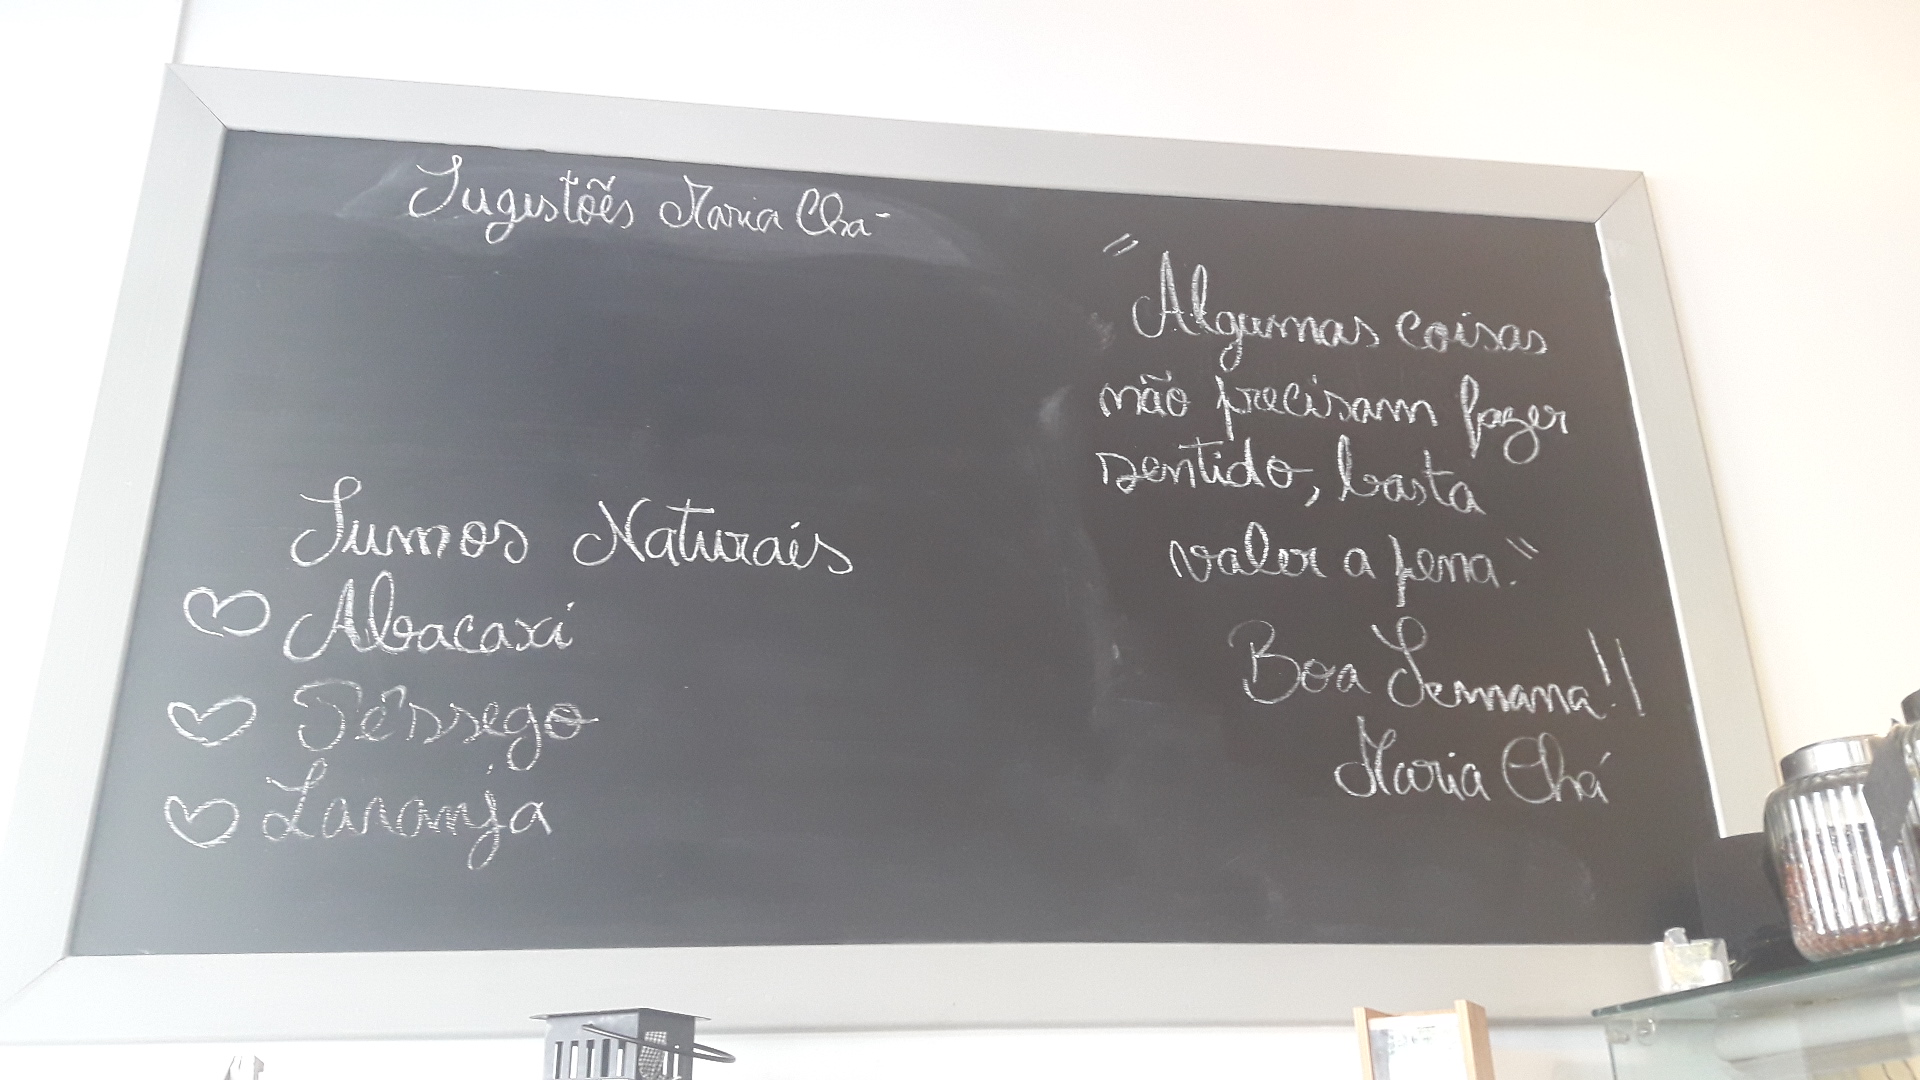 Sugestões Maria Chá
Sumos Naturais
Abacaxi
Pêssego
Laranja
"Algumas coisas
não precisam fazer
sentido, basta
valer a pena."
Boa Semana!!
Maria Chá